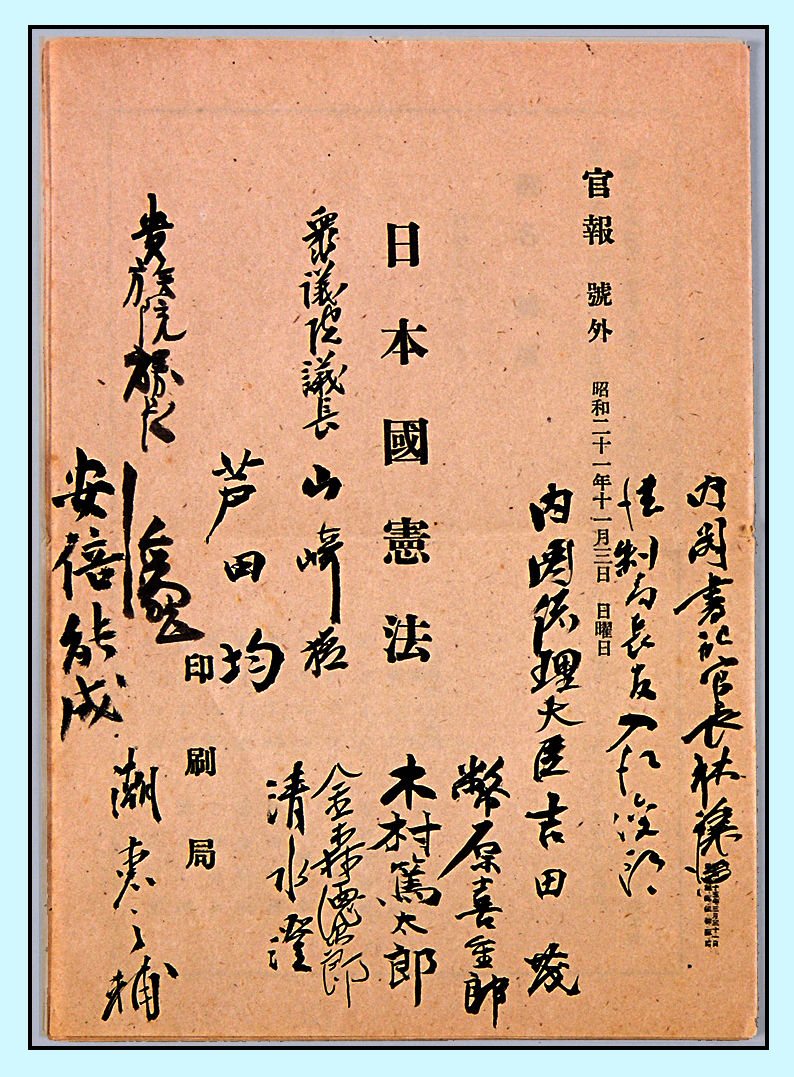 内閣書記官長林譲治
法制局長官入江俊郎
官報 號外 昭和二十一年十一月三日 日曜日
内閣総理大臣吉田茂
幣原喜重郎
日本國憲法
木村篤太郎
衆議院議長 山崎猛
金森徳次郎
清水澄
芦田均
印刷局
貴族院議長
安倍能成
潮恵之輔